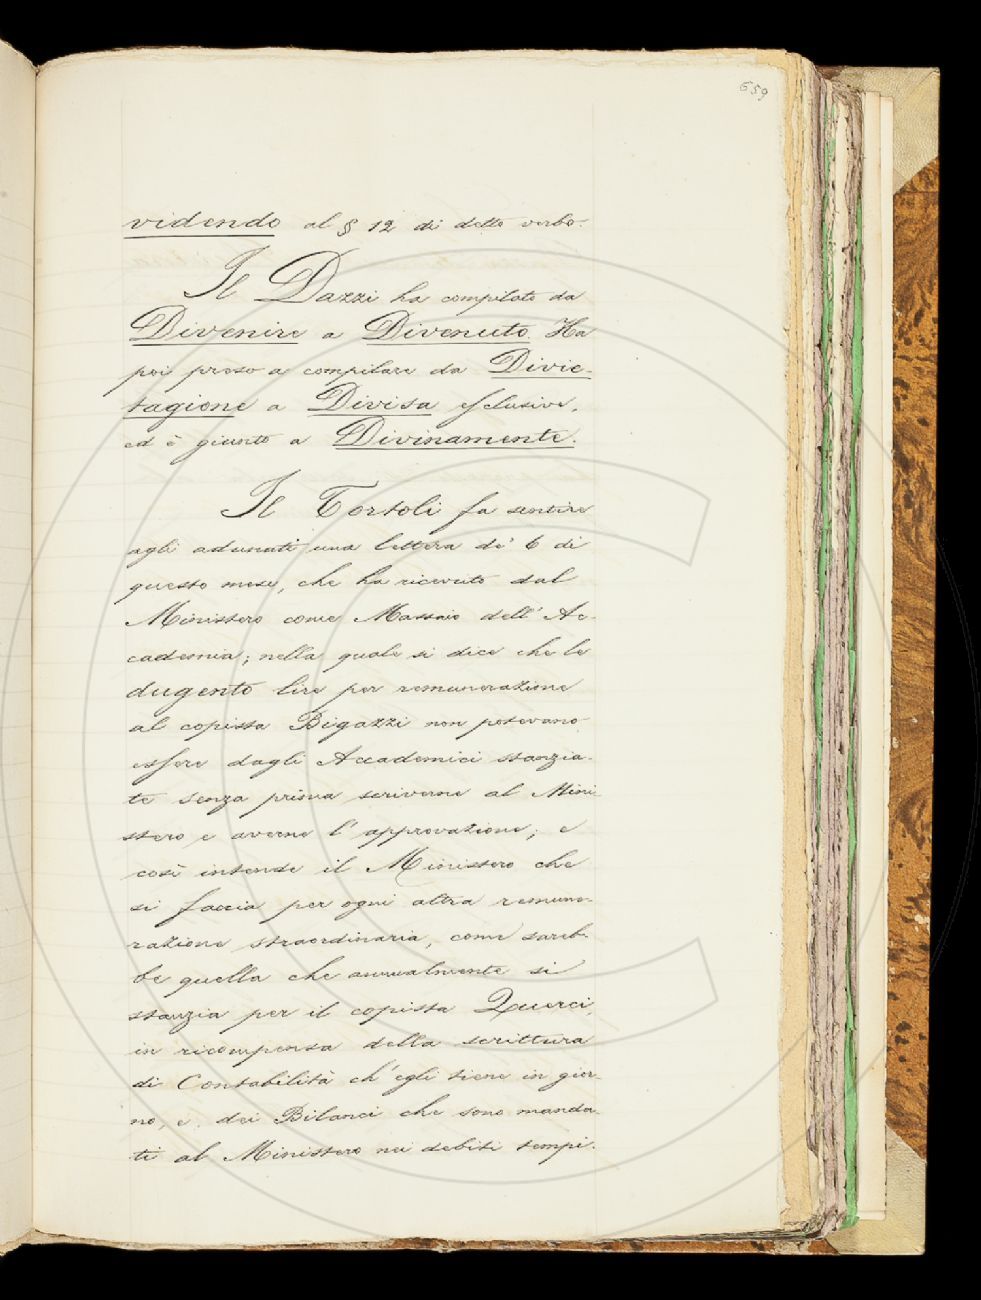 659
videndo al § 12 di detto verbo.
Il Dazzi ha compilato da
Divenire a Divenuto. Ha
poi preso a compilare da Divie-
tagione a Divisa esclusive,
ed è giunto a Divinamente.
Il Tortoli fa sentire
agli adunati una lettera de' 6 di
questo mese, che ha ricevuto dal
Ministero come Massaio dell' Ac-
cademia; nella quale si dice che le
dugento lire per remunerazione
al copista Bigazzi non potevano
essere dagli Accademici stanzia-
te senza prima scriverne al Mini
stero e averne l' approvazione; e
così intende il Ministero che
si faccia per ogni altra remune-
razione straordinaria, come sareb-
be quella che annualmente si
stanzia per il copista Querci,
in ricompensa della scrittura
di Contabilità ch' egli tiene in gior-
no, e dei Bilanci che sono manda-
ti al Ministero nei debiti tempi.